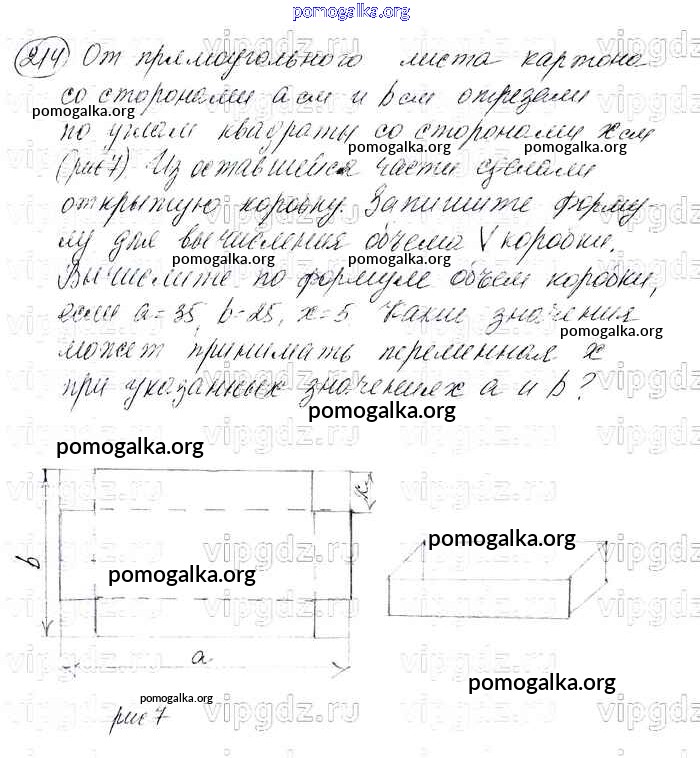 pomogalka.org
214 От прямоугольного листа картона
со сторонами a см и b см отрезали
pomogalka.org
по углам квадраты со сторонами x см
pomogalka.org
pomogalka.org
(рис 7) Из оставшейся части сделали
открытую коробку. Запишите форму-
pomogalka.org
лу для вычисления объема V коробки.
pomogalka.org
pomogalka.org
Вычислите по формуле объем коробки,
если a = 35, b = 25, x = 5 Какие значения
pomogalka.org
может принимать переменная x
при указанных значениях a и b?
pomogalka.org
pomogalka.org
x
b
pomogalka.org
pomogalka.org
a
pomogalka.org
pomogalka.org
рис 7
vipgdz.ru